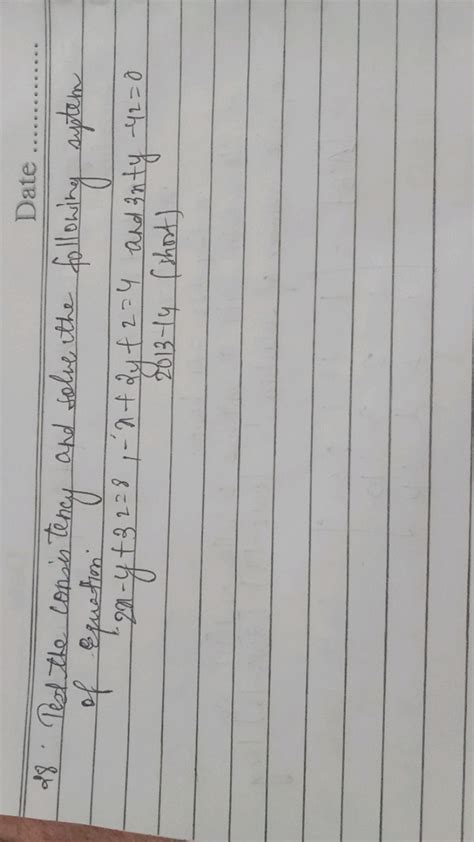 Date ..............
28. Test the consistency and solve the following system
of equation.
2x-y+3z=8, -x+2y+z=4 and 3x+y-4z=0
2013-14 (short)